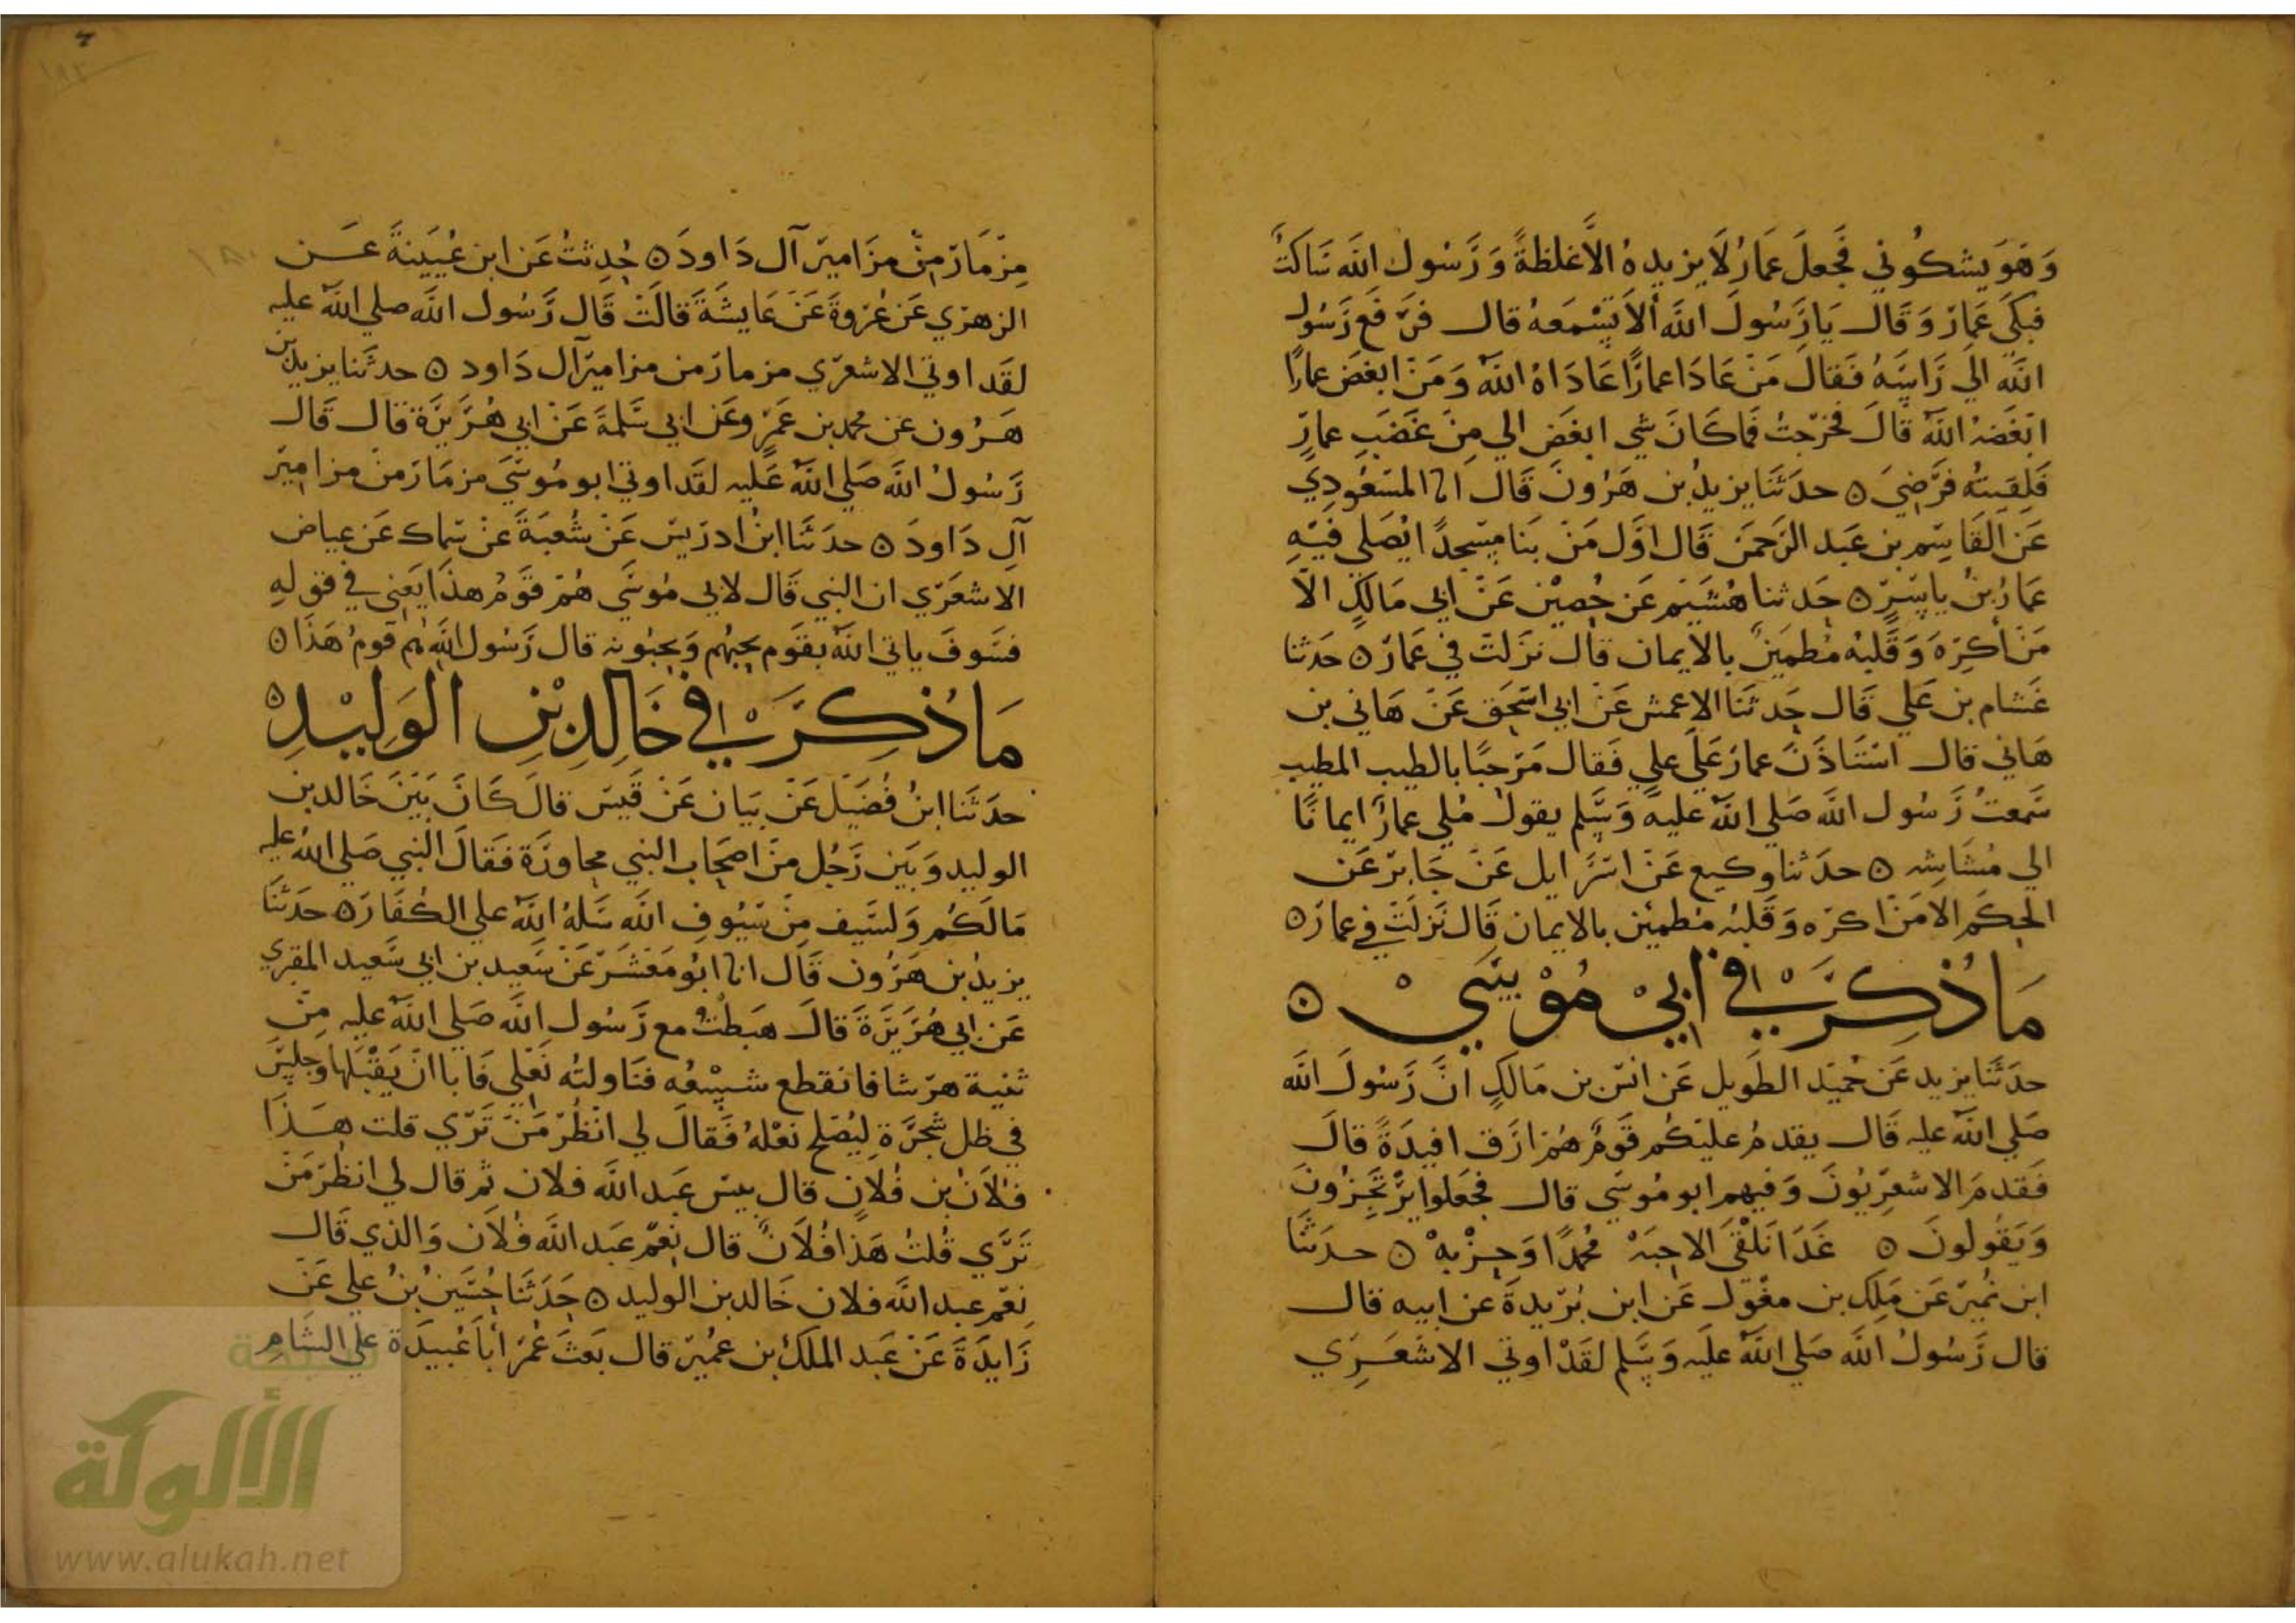 وَهوَ يشكُوني فجَعلَ عَمارُ لَا يزيدهُ الاَّ غلظةً وَرَسُول اللَّه سَاكتٌ
فبكَى عَمارٌ وَقَال يَا رَسُولَ اللَّه ألاَ تسْمَعهُ قال فرَفَع رَسُول
اللَّه الي رَاسَهُ فَقالَ مَنْ عَادَا عمارًا عَادَاهُ اللَّهُ وَمَنْ ابغضَ عمارًا
ابْغَضهُ اللَّهُ قَالَ فخرَجتُ فمَا كَانَ شي ابغَض الي مِنْ غَضَبِ عمارٍ
فَلِقيتُهُ فرَضِيَ ٥ حدَثَنَا يزيدُ بن هَرُونَ قَالَ انا المسْعُودِي
عَنِ القَاسِم بن عَبد الرَحمَن قَال اوَّل مَنْ بنَا مَسْجدًا يُصَلي فيْهِ
عَمارُ بنُ يَاسِرٍ ٥ حَدثنا هُشَيْم عَن حُصيْن عَنْ ابي مَالكٍ الاَّ
مَنْ أكرِهَ وَقَلبُه مُطمَئِنٌ بالايمان قَال نزَلتْ في عَمارٍ ٥ حَدثنا
غَشام بن عَلي قَال حَدثَنَا الاعمش عَنْ ابي اسْحَق عَنْ هَاني بن
هَاني قال اسْتَاذَنَ عمارٌ عَلَى علي فَقال مَرْحبًا بالطيب المطيب
سَمعتُ رَسُول اللَّه صَلي اللَّهُ عليه وَسَلم يقولُ مُلي عمارٌ ايمانًا
الي مُشَاشِه ٥ حدَثنا وكيع عَنْ اسْرَايل عَنْ جَابرٌ عَن
الحكَم الا مَنْ اكرَه وَقَلبُه مُطمَئِن بالايمان قَال نَزلَتْ في عمارٍ ٥
مَا ذُكِرَ في أبي مُوْسَى ٥
حدَثَنَا يزيد عَن حُميْد الطَويل عَن انسْ بن مَالكٍ انَّ رَسُولَ اللَّه
صَلي اللَّه عليه قَال يقدمُ عليْكُم قَومٌ هُمْ ارَق افيدَةً قَالَ
فَقدمَ الاشعَرِيُونَ وَفيهم ابو مُوسَي قال فجَعَلوا يرْتَجزُونَ
وَيَقولونَ ٥ غَدًا نَلْقَى الاحِبَهْ مُحمدًا وَحِزْبهْ ٥ حدَثَنَا
ابن نُميرٌ عَن مَلِك بن مغْول عَن ابن بُرَيدةَ عن ابيه قال
قال رَسُولُ اللَّه صَلي اللَّهُ علَيه وَسَلم لقَدْ اوتي الاشعَرِي
مِزْمَارٌ مِنْ مزَامير آل دَاودَ ٥ حُدِثتُ عَن ابن عُيَينةَ عَن
الزهرْي عَن عُرْوةَ عَنْ عَايشَةَ قَالَتْ قَال رَسُول اللَّه صلي اللَّهُ عليه
لقَد اوتي الاشعرَي مزمارٌ من مزاميرآل دَاود ٥ حدثَنا يزيد بن
هَرُون عن محمد بن عَمرٍو عَن ابي سَلمةَ عَنْ ابي هُرَيرَة قال قَال
رَسُولُ اللَّه صَلي اللَّهُ عَليه لقَد اوتي ابو مُوسَى مزمَارٌ منْ مزامير
آلِ دَاودَ ٥ حدَثنَا ابنُ ادرَيسْ عَنْ شُعبَةَ عَنْ سمَاك عَن عياض
الاشعَري ان النبي قَال لابي مُوسَي هُمْ قَومُ هذا يَعني في قولهِ
فسَوفَ ياتي اللَّهُ بقَوم يحِبُهُم وَيحِبُونه قال رَسُول اللَّه هُم قومُ هَذَا ٥
مَا ذُكِرَ في خَالِدِ بْنِ الوَلِيْدِ ٥
حدَثَنا ابنُ فُضَيْل عَنْ بَيَان عَنْ قَيسْ قالَ كَانَ بَيْنَ خَالد بن
الوليد وَبَين رَجُل منْ اصحَاب النبي محاورَة فَقالَ النبي صَلي اللَّهُ عليه
مَا لَكُم وَلسَيف مِنْ سُيُوفِ اللَّه سَلهُ اللَّهُ علي الكُفَارَ ٥ حدَثَنَا
يزيدُ بن هَرُون قَال انا ابُو مَعْشَرٌ عَنْ سَعيد بن ابي سَعيد المقبري
عَن ابي هُرَيرَةَ قَالَ هبَطتُ مع رَسُول اللَّه صَلي اللَّهُ عليه مِنْ
ثنية هرْشا فانقطع شسْعُه فنَاولتُه نَعْلي فَابا انْ يَقْبَلهَا وَجلسَ
في ظل شجرَة لِيُصْلح نعْلهُ فَقالَ لي انْظُرْ مَنْ تَرَي قلت هَذَا
فلاَن بن فُلاَن قال بيس عَبد اللَّه فلان ثم قال لي انظُرْ مَنْ
تَرَي قُلتُ هَذَا فُلاَنٌ قال نِعْمَ عَبد اللَّه فُلاَن وَالذي قَال
نِعْمَ عبد اللَّه فلان خَالد بن الوليد ٥ حَدَثَنَا حُسَينُ بنُ علي عَنْ
زَايدَةَ عَنْ عَبد الملك بن عمُيرٌ قال بَعثَ عُمَرُ أبَا عُبيدَة علي الشَامِ
الألوكة
www.alukah.net